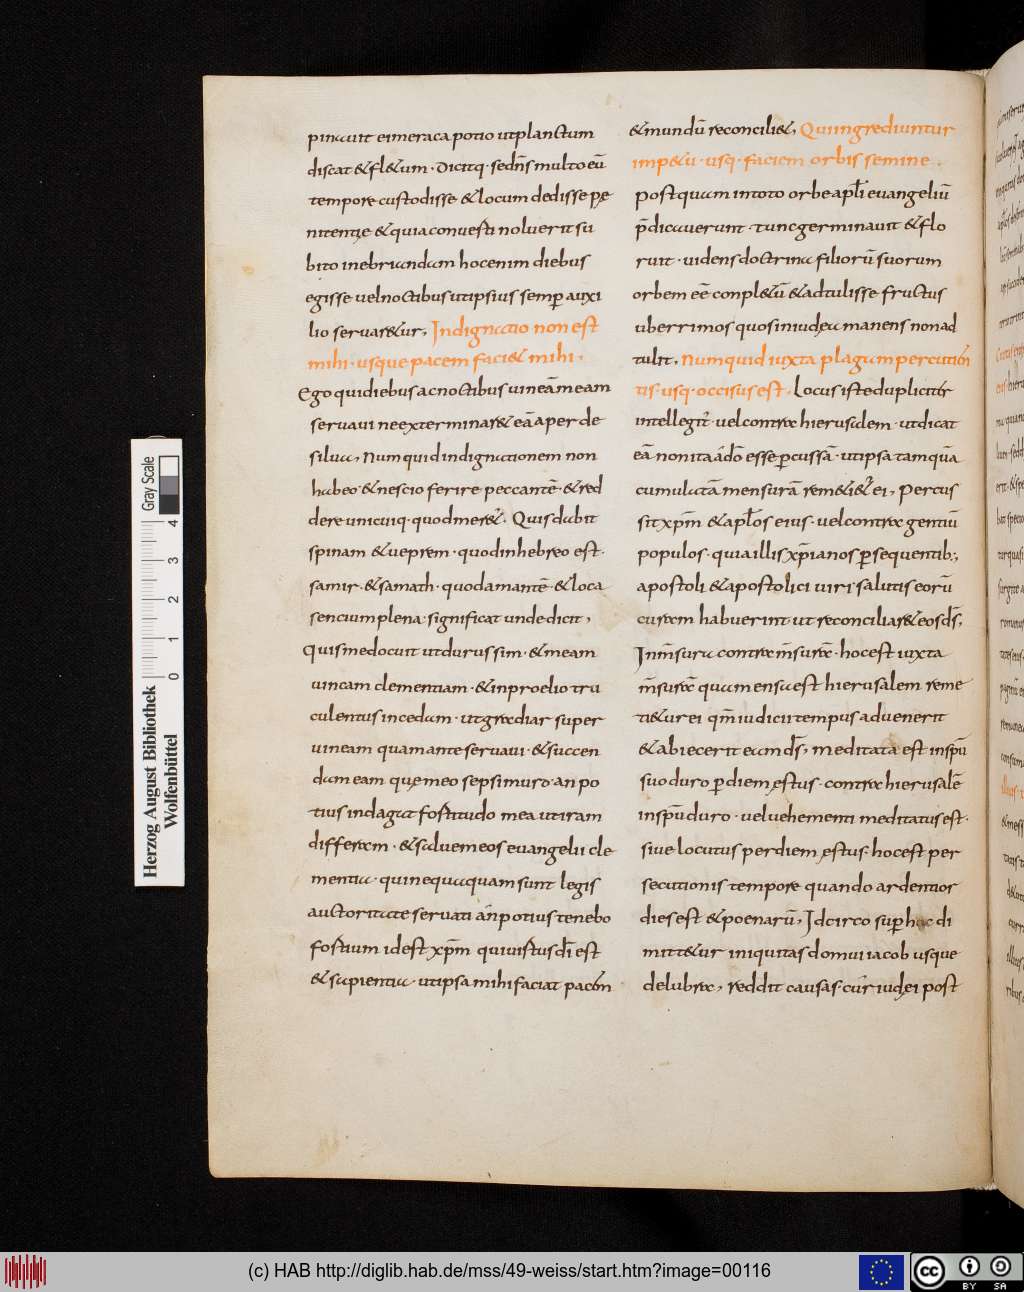 pinauit eimeraca potio utplanctum
discat &fl&um · Dicitq· sedn̄s multo eū
tempore custodisse &locum dedisse pę
nitentię &quia conuerti noluerit su
bito inebriandam hocenim diebus
egisse uelnoctibus utipsius semp auxi
lio seruar&ur, Indignatio non est
mihi · usque pacem faci& mihi ·
Ego quidiebus acnoctibus uineāmeam
seruaui neexterminar& eā aper de
silua, Numquid indignationem non
habeo · &nescio ferire peccantē · &red
dere unicuiq· quodmer&. Quis dabit
spinam &ueprem · quodinhebreo est ·
samir · &samath · quodamantē · &loca
sencium plena significat unde dicit,
Quismedocuit utdurus sim · &meam
uineam clementiam · &inproelio tru
culentus incedam · utgrediar super
uineam quamante seruaui · &succen
dam eam quę meo sepsi muro an po
tius indagat fortitudo mea utiram
differam · &saluem eos euangelii cle
mentia · qui nequaquam sunt legis
auctoritate seruati an potius tenebo
fortium idest xp̄m qui uirtus dī est
&sapientia · utipsa mihi faciat pacem
&mundū reconcili&, Qui ingrediuntur
imp&u · usq· faciem orbis semine .
postquam intoto orbe apłi euangeliū
p̄dicauerunt · tunc germinauit &flo
ruit · uidens doctrina filiorū suorum
orbem eē conpl&ū &adtulisse fructus
uberrimos quos iniudęa manens nonad
tulit, Numquid iuxta plagam percutien
tis · usq· occisus est · Locus iste dupliciter
intellegit̄ · uel contra hierusalem · utdicat
eā non ita ado esse pcussā · utipsa tamquā
cumulatā mensurā rem&i&̄ ei, Percus
sit xp̄m &apłos eius · uel contra gentiū
populos · quia illis xp̄ianos psequentib;,
apostoli &apostolici uiri salutis eorū
curam habuerint ut reconciliar& eos ds̄,
In m̄sura contra m̄surā · hocest iuxta
m̄surā qua mensa est hierusalem reme
ti&ur ei qm̄ iudicii tempus aduenerit
&abiecerit eam ds̄, meditata est insp̄u
suo duro p diem ęstus · contra hierusalē
insp̄u duro · uel uehementi meditatus est ·
siue locutus per diem ęstus · hocest per
secutionis tempore quando ardentior
dies est &poenarū, Idcirco sup hac di
mitt&ur iniquitas domui iacob usque
delubra, reddit causas cur iudęi post
Herzog August Bibliothek
Wolfenbüttel
Gray Scale
0 1 2 3 4
(c) HAB http://diglib.hab.de/mss/49-weiss/start.htm?image=00116
cc BY SA